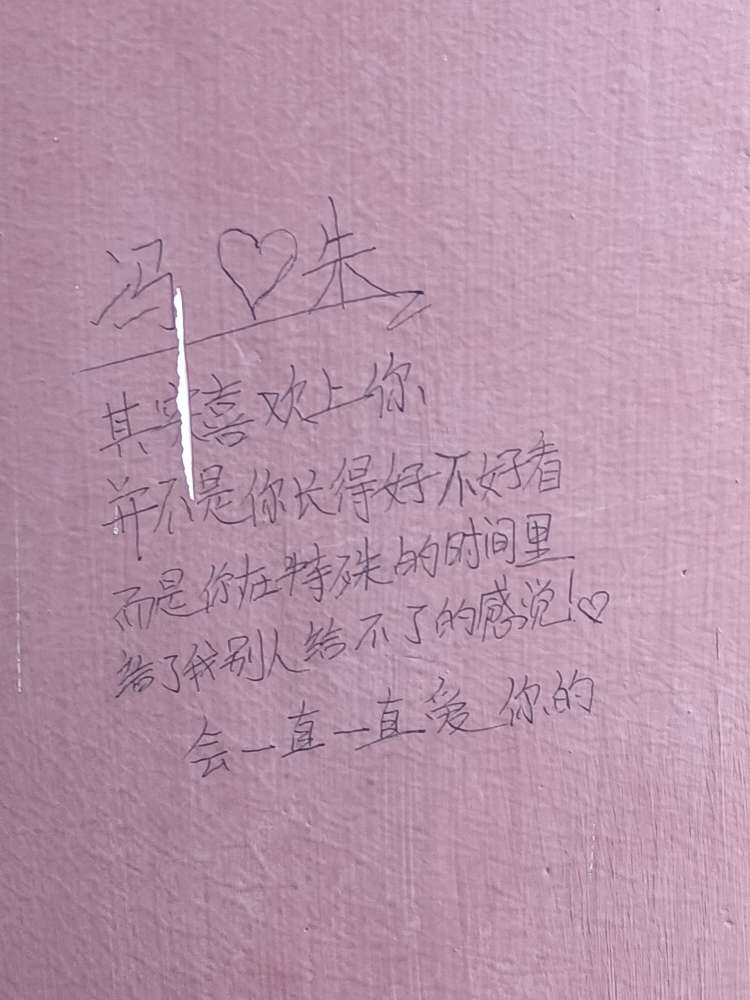 冯♡朱
其实喜欢上你
并不是你长得好不好看
而是你在特殊的时间里
给了我别人给不了的感觉!♡
会一直一直爱你的